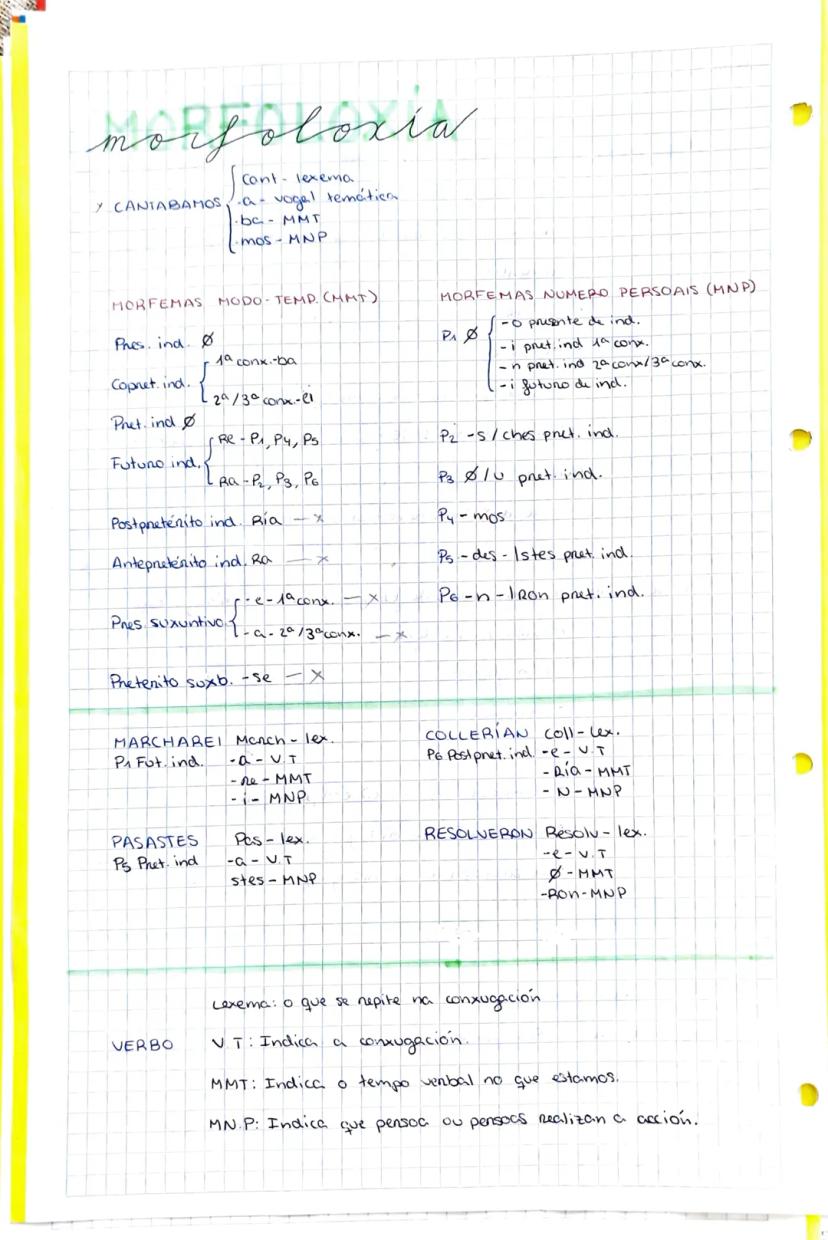 MORFOLOXÍA
morfoloxía
Cant - lexema
CANTABAMOS
-a- vogal temática
-ba - MMT
-mos - MNP
MORFEMAS MODO-TEMP. (MMT)
Pres. ind. Ø
1ª conx. -ba
Copret. ind.
2ª/3ª conx. -ei
Pret. ind Ø
Re - P1, P4, P5
Futuro ind.
Ra - P2, P3, P6
Postpretérito ind. Ría — x
Antepretérito ind. Ra — x
-e - 1ª conx. — x
Pres. suxuntivo
-a - 2ª/3ª conx. — x
Pretérito suxb. -se — x
MORFEMAS NUMERO PERSOAIS (MNP)
-o presente de ind.
P1 Ø
-i pret. ind 1ª conx.
-n pret. ind 2ª conx/3ª conx.
-i futuro de ind.
P2 -s / ches pret. ind.
P3 Ø/U pret. ind.
P4 - mos
P5 - des - /stes pret. ind.
P6 - n - /Ron pret. ind.
MARCHAREI March - lex.
P1 Fut. ind. -a - V.T
-re - MMT
-i - MNP
COLLERÍAN Coll - lex.
P6 Postpret. ind. -e - V.T
-Ría - MMT
-N - MNP
PASASTES Pas - lex.
P5 Pret. ind -a - V.T
stes - MNP
RESOLVERON Resolv - lex.
-e - V.T
Ø - MMT
-Ron - MNP
Lexema: o que se repite na conxugación
VERBO V.T: Indica a conxugación.
MMT: Indica o tempo verbal no que estamos.
MN.P: Indica que persoa ou persoas realizan a acción.